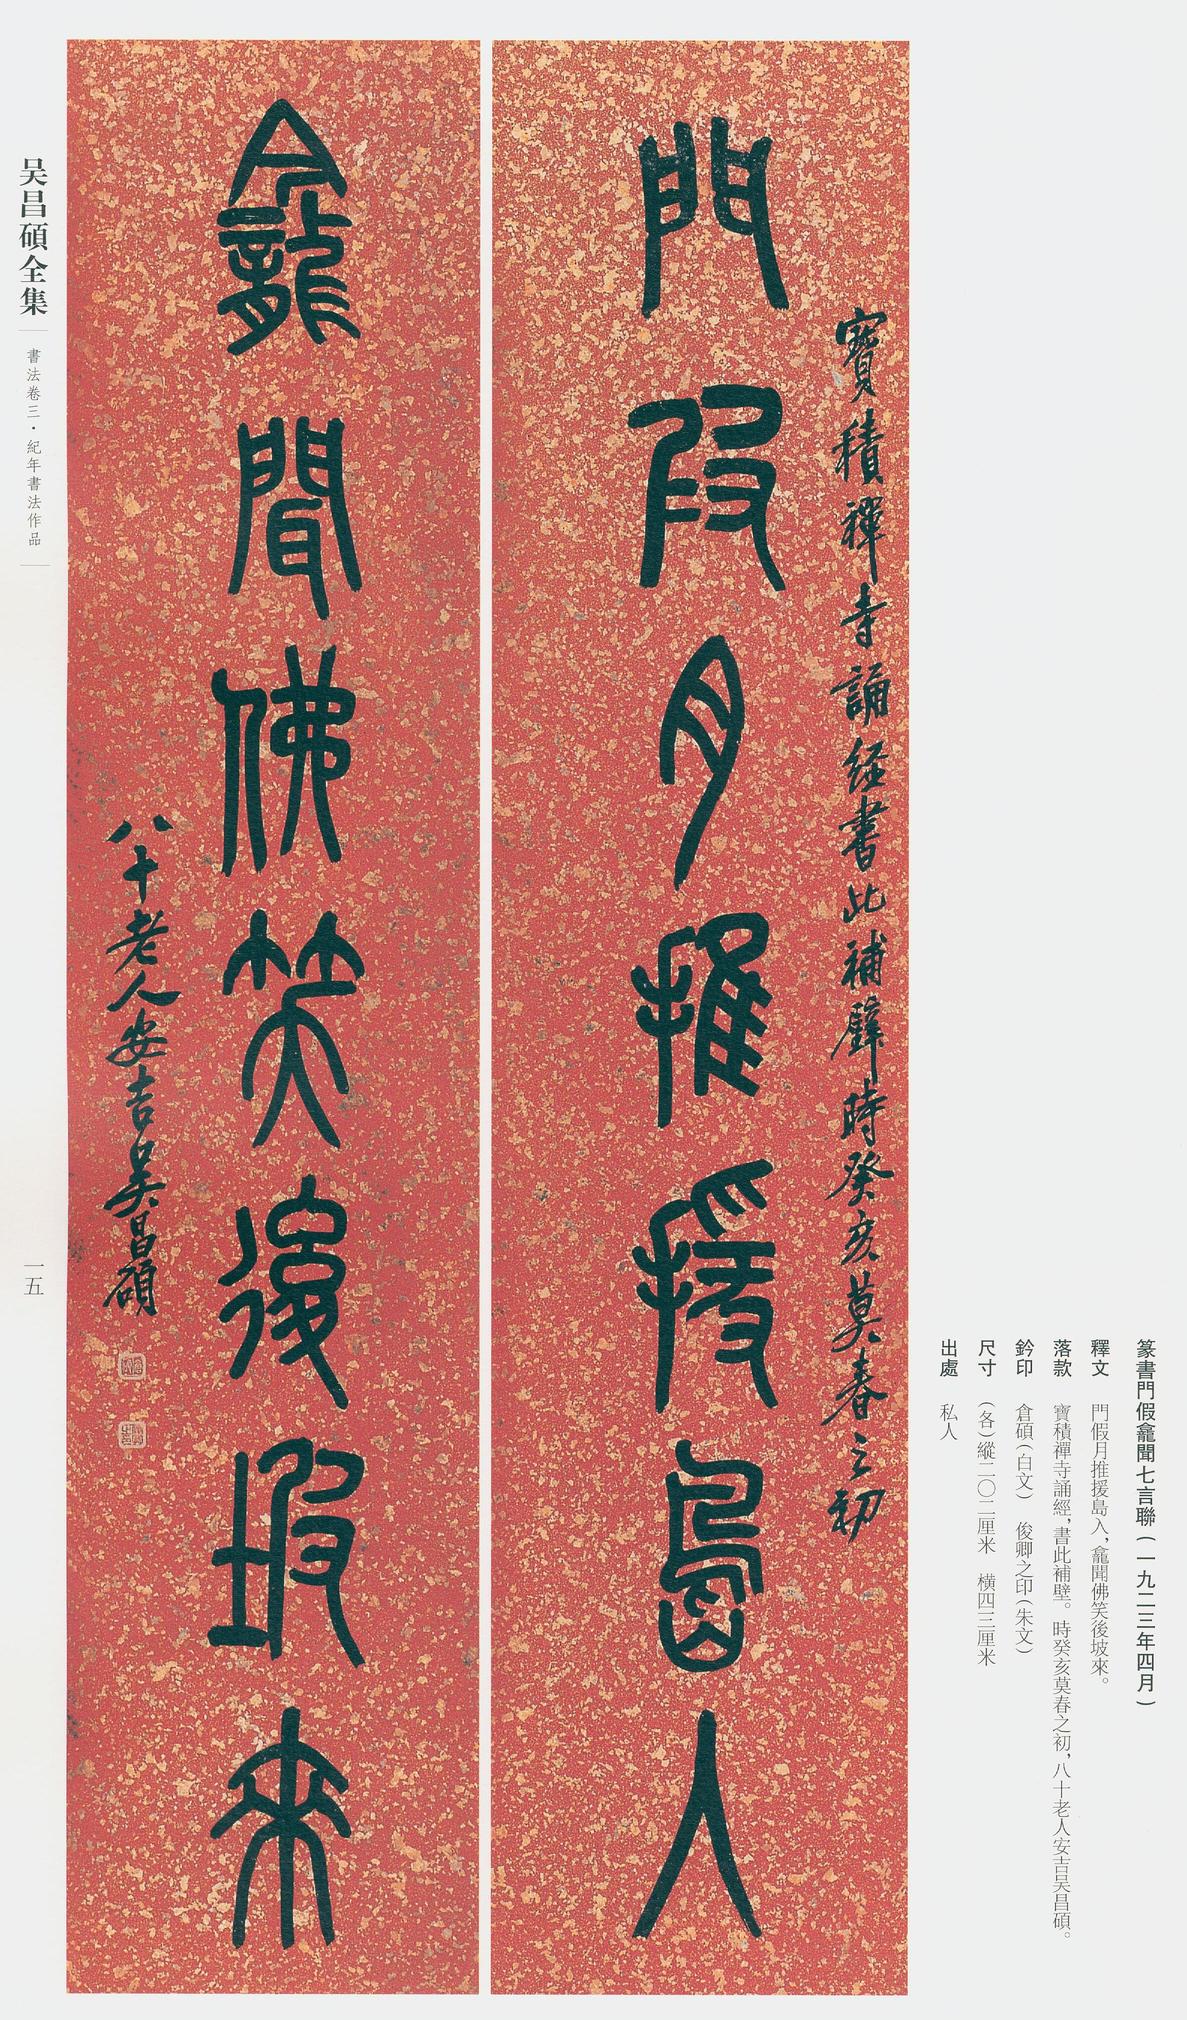 篆書門假龕聞七言聯（一九二三年四月）
釋文　門假月推援島入，龕聞佛笑後坡來。
落款　寶積禪寺誦經，書此補壁。時癸亥莫春之初，八十老人安吉吴昌碩。
鈐印　倉碩（白文）　俊卿之印（朱文）
尺寸　（各）縱二〇二厘米　橫四三厘米
出處　私人
寶積禪寺誦經書此補壁時癸亥莫春之初
門叚月推援島入
龕聞佛笑後坡來
八十老人安吉吴昌碩
吴昌碩全集
書法卷三·紀年書法作品
一五